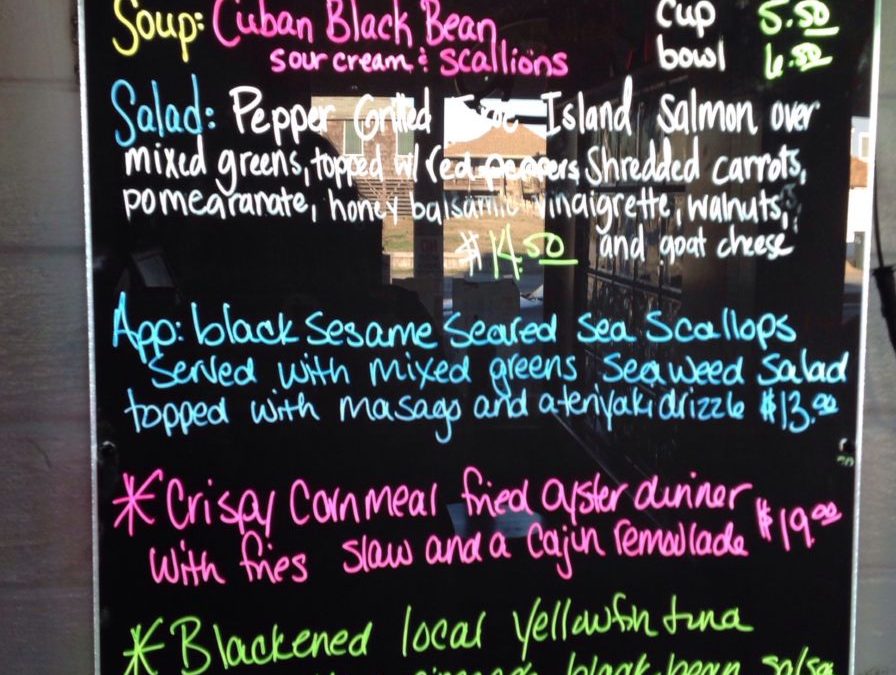 Soup: Cuban Black Bean cup 5.50
sour cream & scallions bowl 6.50
Salad: Pepper Grilled Island Salmon over
mixed greens, topped w/ red peppers, Shredded carrots,
pomegranate, honey balsamic vinaigrette, walnuts,
$14.50 and goat cheese
App: black Sesame Seared Sea Scallops
Served with mixed greens Seaweed Salad
topped with masago and a teriyaki drizzle $13.00
*Crispy Cornmeal fried oyster dinner $19.00
with fries slaw and a cajun remoulade
*Blackened local Yellowfin tuna
black bean salsa